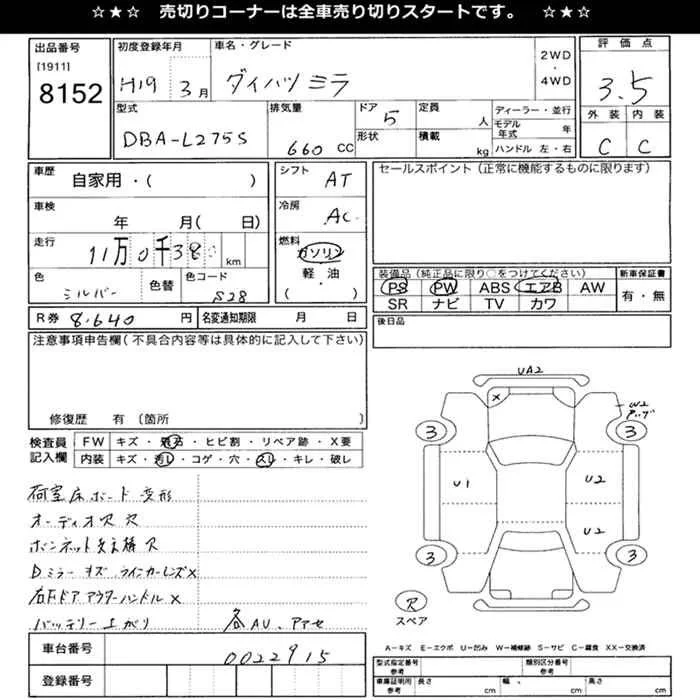 ☆★☆ 売切りコーナーは全車売り切りスタートです。 ☆★☆
出品番号
[1911]
8152
初度登録年月
H19 3月
車名・グレード
ダイハツ ミラ
2WD
・
4WD
評価点
3.5
外装 内装
C C
型式
DBA-L275S
排気量
660 CC
ドア 5
形状
定員 人
積載 kg
ディーラー・並行
モデル年式 年
ハンドル 左・右
車歴
自家用・( )
車検
年 月( 日)
走行
11万0千38 km
色
シルバー
色替
色コード
S28
シフト
AT
冷房
AC
燃料
ガソリン
軽・油
( )
セールスポイント(正常に機能するものに限ります)
装備品(純正品に限り○をつけてください)
PS PW ABS エアB AW
SR ナビ TV カワ
新車保証書
有・無
R券 8,640 円
名変通知期限 月 日
後日品
注意事項申告欄(不具合内容等は具体的に記入して下さい)
修復歴 有(箇所 )
検査員記入欄
FW キズ・飛石・ヒビ割・リペア跡・X要
内装 キズ・汚れ・コゲ・穴・スレ・キレ・破レ
荷室床ボード 変形
オーディオ穴 穴
ボンネット支え棒 穴
Dミラー キズ ウインカーレンズ×
右Fドア アウターハンドル ×
バッテリー上がり
各AU、アアセ
UA2
×
W2
3
3
U1
U2
U2
3
3
穴
スペア
A-キズ E-エクボ U-凹み W-補修跡 S-サビ C-腐食 XX-交換済
車台番号
0022915
登録番号
型式指定番号
参考
類別区分番号
参考
車庫証明用
参考
長さ cm
幅 cm
高さ cm